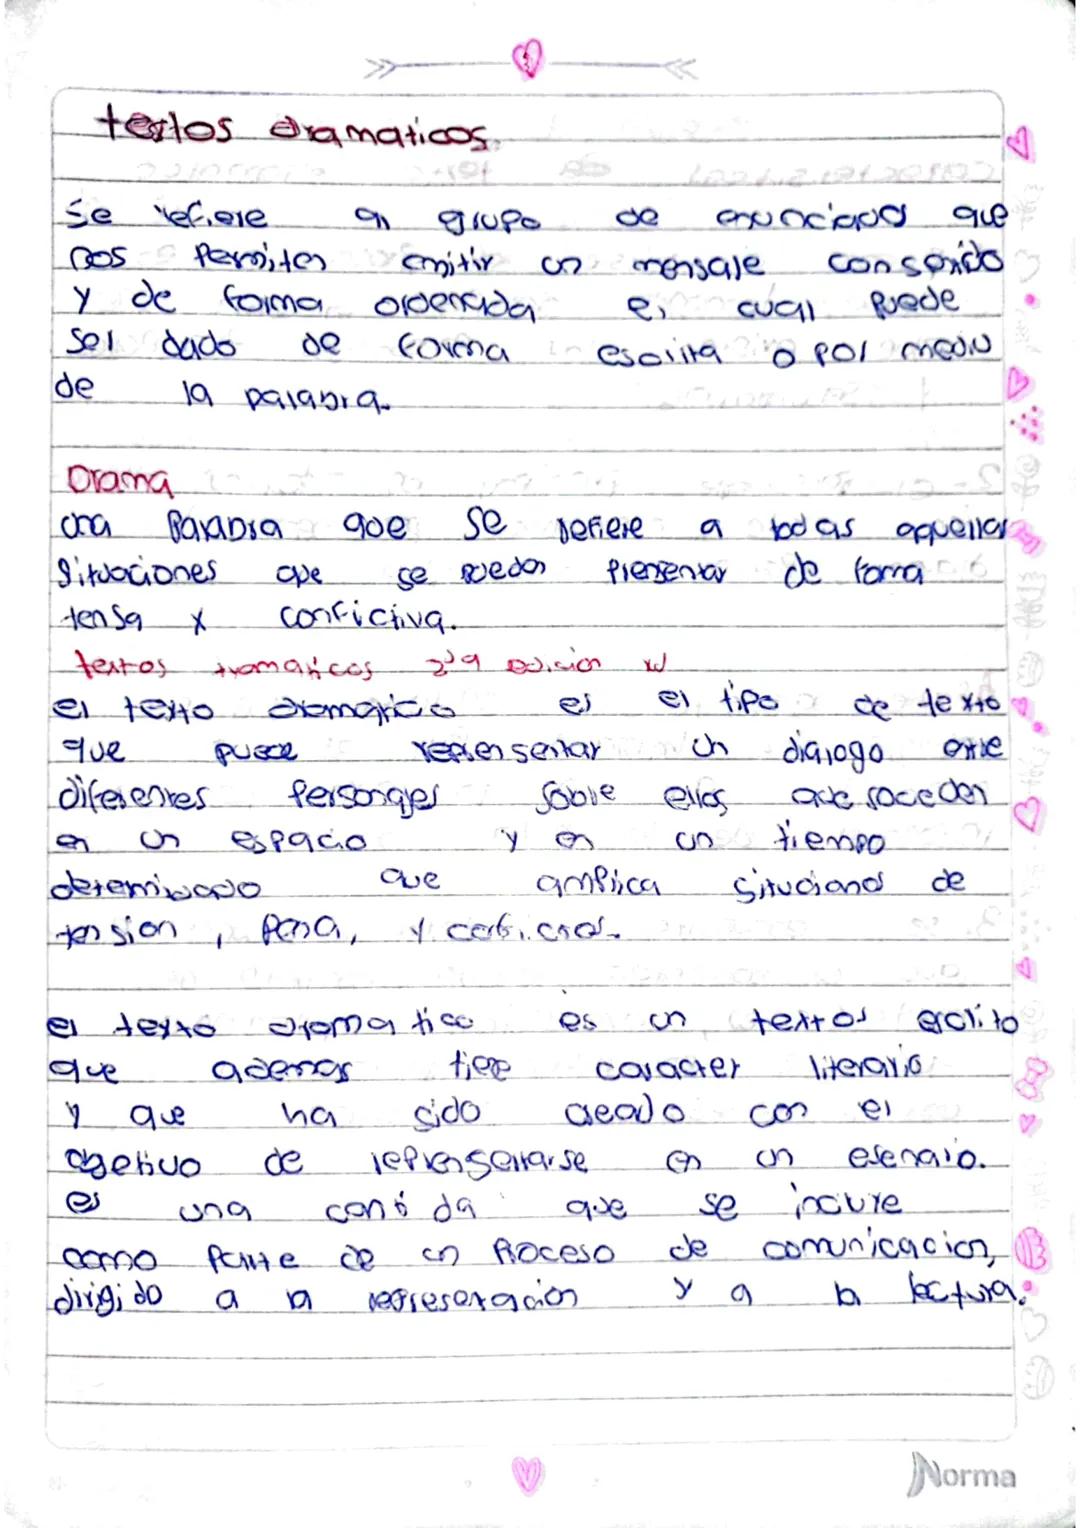 textos dramaticos.
se refiere al grupo de enunciados que
nos permiten emitir un mensaje con sentido
y de forma ordenada el cual puede
ser dado de forma escrita o por medio
de la palabra.
Drama
una palabra que se refiere a todas aquellas
situaciones que se pueden presentar de forma
tensa y conflictiva.
textos dramaticos
el texto dramatico es el tipo de texto
que puede representar un dialogo entre
diferentes personajes sobre ellos que suceden
en un espacio y en un tiempo
determinado que amplica situciones de
tension, pena, y conflictos.
el texto dramatico es un textos escrito
que ademas tiene caracter literario
y que ha sido creado con el
ogetivo de reprensentarse en un esenario.
es una que se incluye
como parte de un proceso de comunicacion,
dirigido a la representación y a la lectura.
Norma